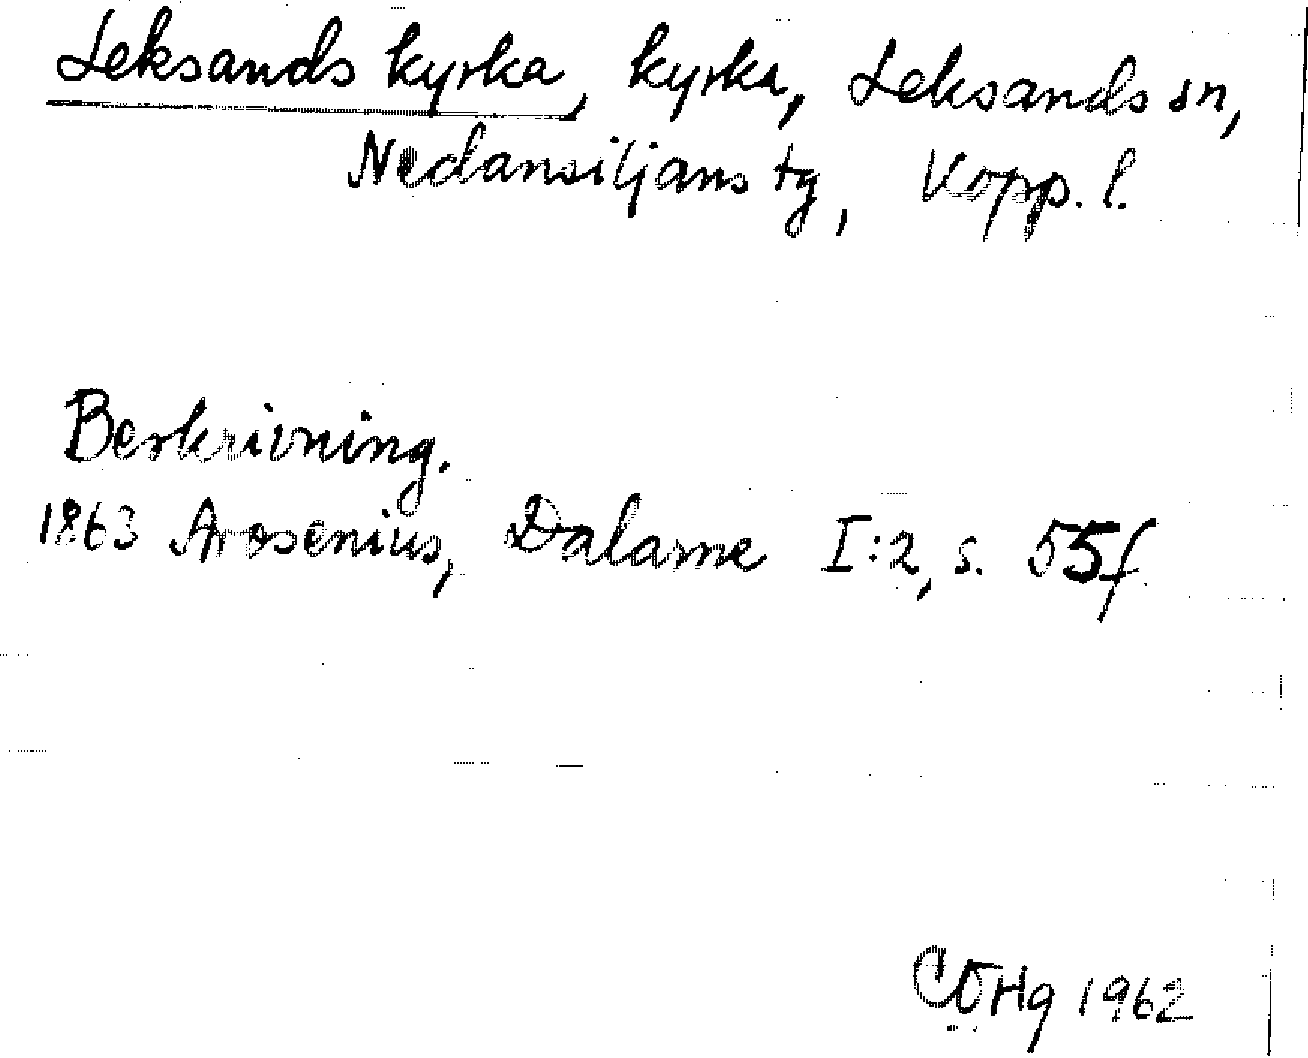 Leksands kyrka, kyrka, Leksands sn,
Nedansiljans tg, Kopp. l.
Beskrivning.
1863 Arosenius, Dalarne I:2, s. 55f.
1962